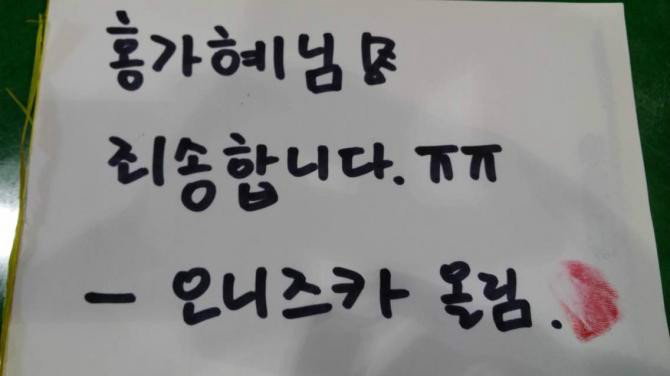 홍가혜님
죄송합니다. ㅠㅠ
- 오니즈카 올림.